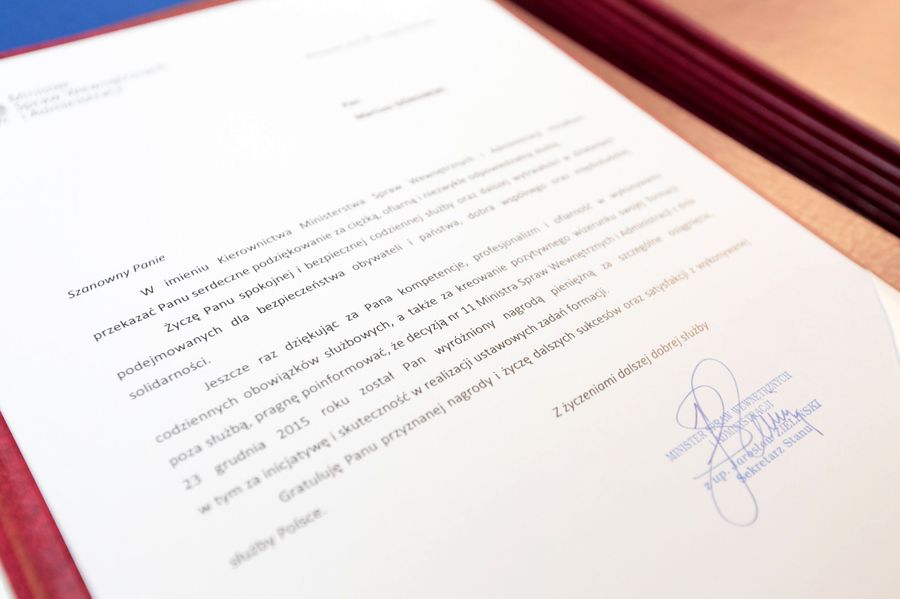 Minister
Spraw Wewnętrznych
i Administracji
Pan
Szanowny Panie
W imieniu Kierownictwa Ministerstwa Spraw Wewnętrznych i Administracji
przekazać Panu serdeczne podziękowanie za ciężką, ofiarną i niezwykle odpowiedzialną służbę.
Życzę Panu spokojnej i bezpiecznej codziennej służby oraz dalszej wytrwałości w działaniach
podejmowanych dla bezpieczeństwa obywateli i państwa, dobra wspólnego oraz międzyludzkiej
solidarności.
Jeszcze raz dziękując za Pana kompetencje, profesjonalizm i ofiarność w wykonywaniu
codziennych obowiązków służbowych, a także za kreowanie pozytywnego wizerunku swojej formacji
poza służbą, pragnę poinformować, że decyzją nr 11 Ministra Spraw Wewnętrznych i Administracji z dnia
23 grudnia 2015 roku został Pan wyróżniony nagrodą pieniężną za szczególne osiągnięcia,
w tym za inicjatywę i skuteczność w realizacji ustawowych zadań formacji.
Gratuluję Panu przyznanej nagrody i życzę dalszych sukcesów oraz satysfakcji z wykonywanej
służby Polsce.
Z życzeniami dalszej dobrej służby
MINISTER SPRAW WEWNĘTRZNYCH
I ADMINISTRACJI
z up. Jarosław ZIELIŃSKI
Sekretarz Stanu